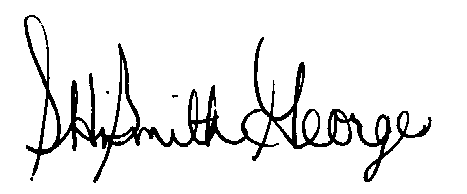 Smith George